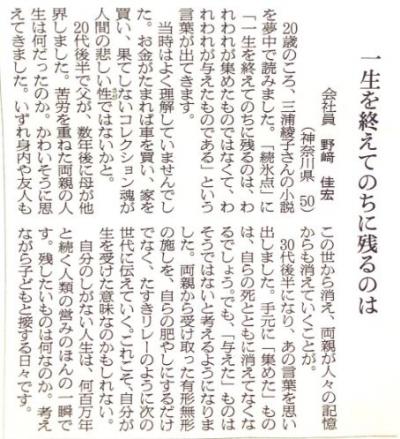 一生を終えてのちに残るのは
会社員　野﨑　佳宏
（神奈川県　50）
　20歳のころ、三浦綾子さんの小説
を夢中で読みました。「続氷点」に
「一生を終えてのちに残るのは、わ
れわれが集めたものではなくて、わ
れわれが与えたものである」という
言葉が出てきます。
　当時はよく理解していませんでし
た。お金がたまれば車を買い、家を
買い、果てしないコレクション魂が
人間の悲しい性ではないかと。
　20代後半で父が、数年後に母が他
界しました。苦労を重ねた両親の人
生は何だったのか。かわいそうに思
えてきました。いずれ身内や友人も
この世から消え、両親が人々の記憶
からも消えていくことが。
　30代後半になり、あの言葉を思い
出しました。手元に「集めた」もの
は、自らの死とともに消えてなくな
るでしょう。でも、「与えた」ものは
そうではないと考えるようになりま
した。両親から受け取った有形無形
の施しを、自らの肥やしにするだけ
でなく、たすきリレーのように次の
世代に伝えていく。これこそ、自分が
生を受けた意味なのかもしれない。
　自分のしがない人生は、何百万年
と続く人類の営みのほんの一瞬で
す。残したいものは何なのか。考え
ながら子どもと接する日々です。